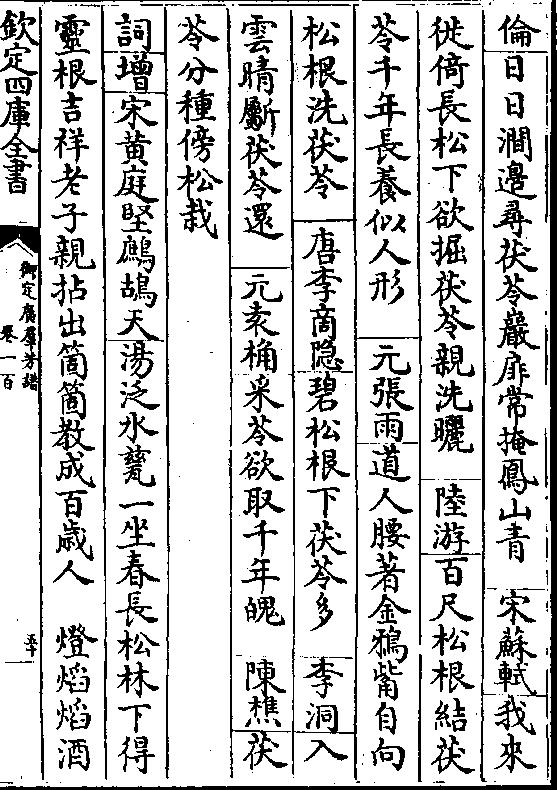 倫日日澗邊尋茯苓巖扉常掩鳳山青　宋蘇軾我來
徙倚長松下欲掘茯苓親洗曬　陸游百尺松根結茯
苓千年長養似人形　元張雨道人腰著金鴉觜自向
松根洗茯苓　唐李商隐碧松根下茯苓多　李洞入
雲晴斸茯苓還　元袁桷采苓欲取千年魄　陳樵茯
苓分種傍松栽
詞增宋黄庭堅鷓鴣天湯泛氷甆一坐春長松林下得
靈根吉祥老子親拈出箇箇教成百歲人　燈熖熖酒
欽定四庫全書
御定廣羣芳譜
卷一百